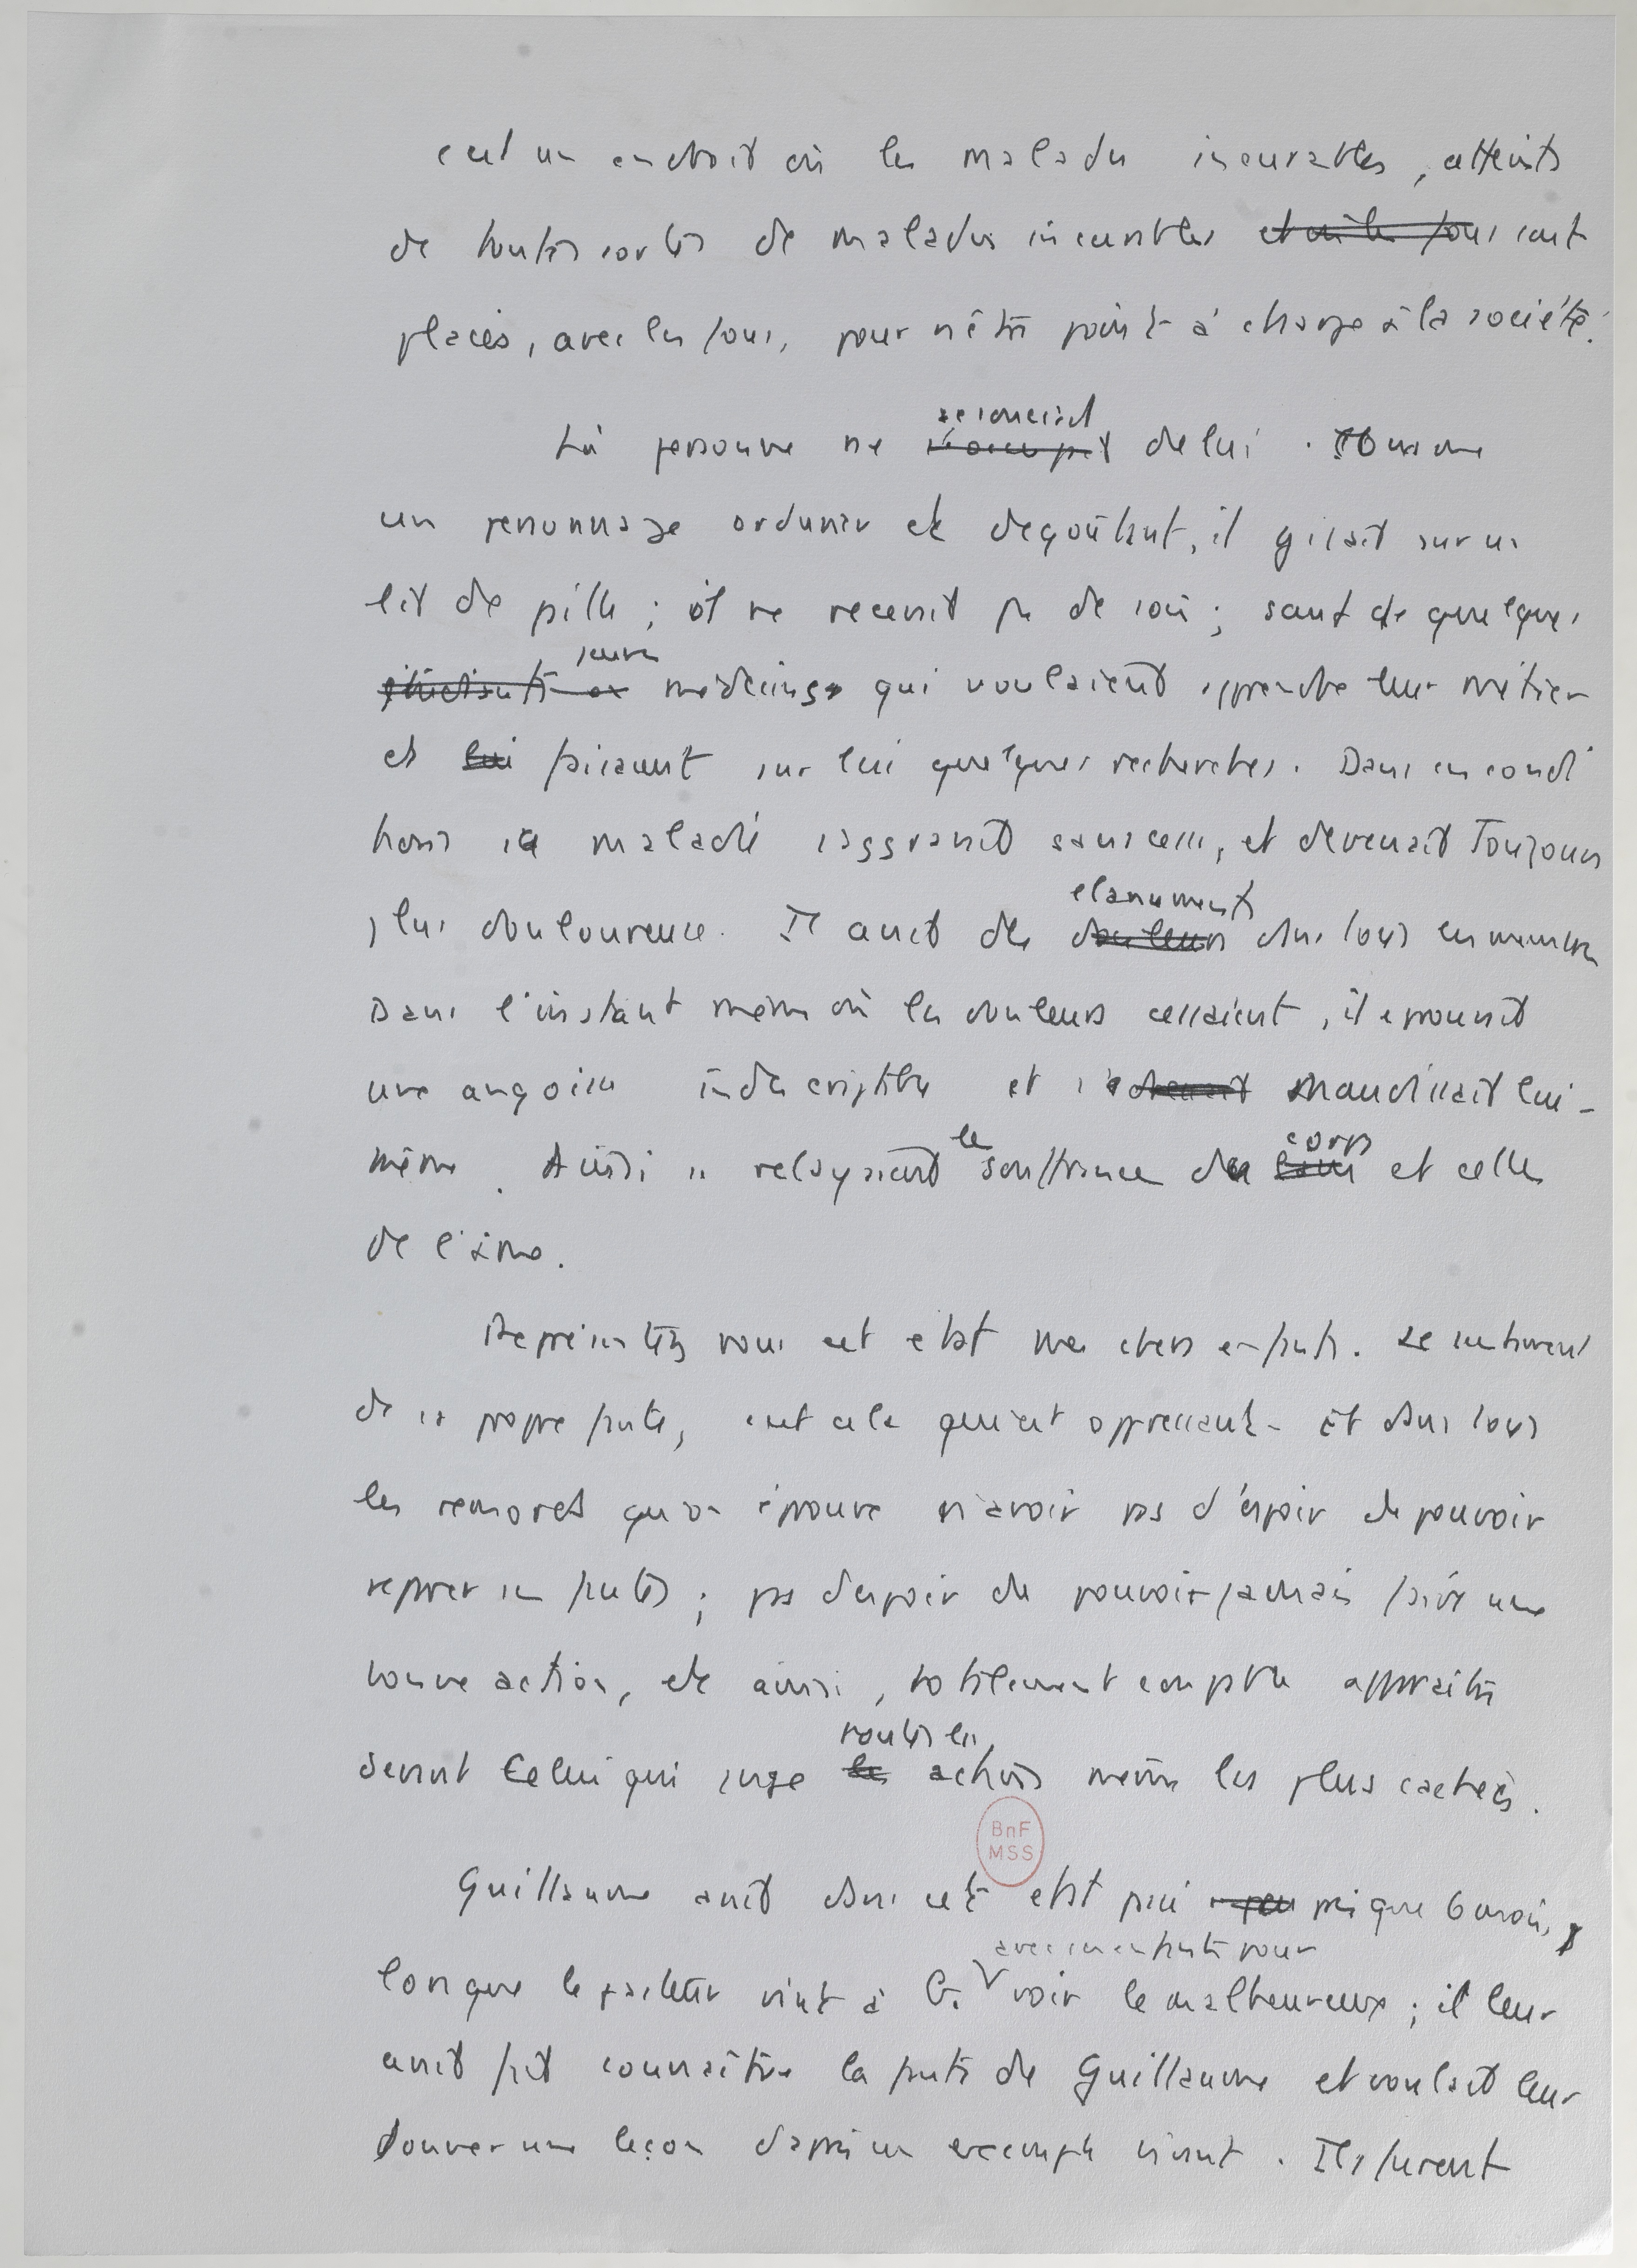 c'est un endroit où les malades incurables, atteints
de toutes sortes de maladies incurables et où les fous sont
placés, avec les fous, pour n'être point à charge à la société.
se souciait
Là personne ne s'occupait de lui. Comme
un personnage ordurier et dégoûtant, il gisait sur un
lit de paille ; il ne recevait pas de soin ; sauf de quelques
jeunes
étudiants en médecins qui voulaient apprendre leur métier
et lui faisaient sur lui quelques recherches. Dans ces condi
tions sa maladie s'aggravait sans cesse, et devenait Toujours
plus douloureuse. Il avait des
élancements
douleurs dans tous les membres
Dans l'instant même où les douleurs cessaient, il éprouvait
une angoisse indescriptible et se maudissait lui-
le corps
même. Ainsi se relayaient souffrance du et celle
de l'âme.
Représentez vous cet état mes chers enfants. Le sentiment
de sa propre faute, c'est cela qui est oppressant. Et dans tous
les remords qu'on éprouve n'avoir pas d'espoir de pouvoir
réparer ses fautes ; pas d'espoir de pouvoir jamais faire une
bonne action, et ainsi, totalement coupable apparaître
toutes les
devant Celui qui juge les actions même les plus cachées.
BnF
MSS
Guillaume avait dans cet état passé peu près que 6 mois,
avec ses enfants pour
lorsque le pasteur vint à G. voir le malheureux ; il leur
avait fait connaître la faute de Guillaume et voulait leur
donner une leçon d'après un exemple vivant. Ils furent